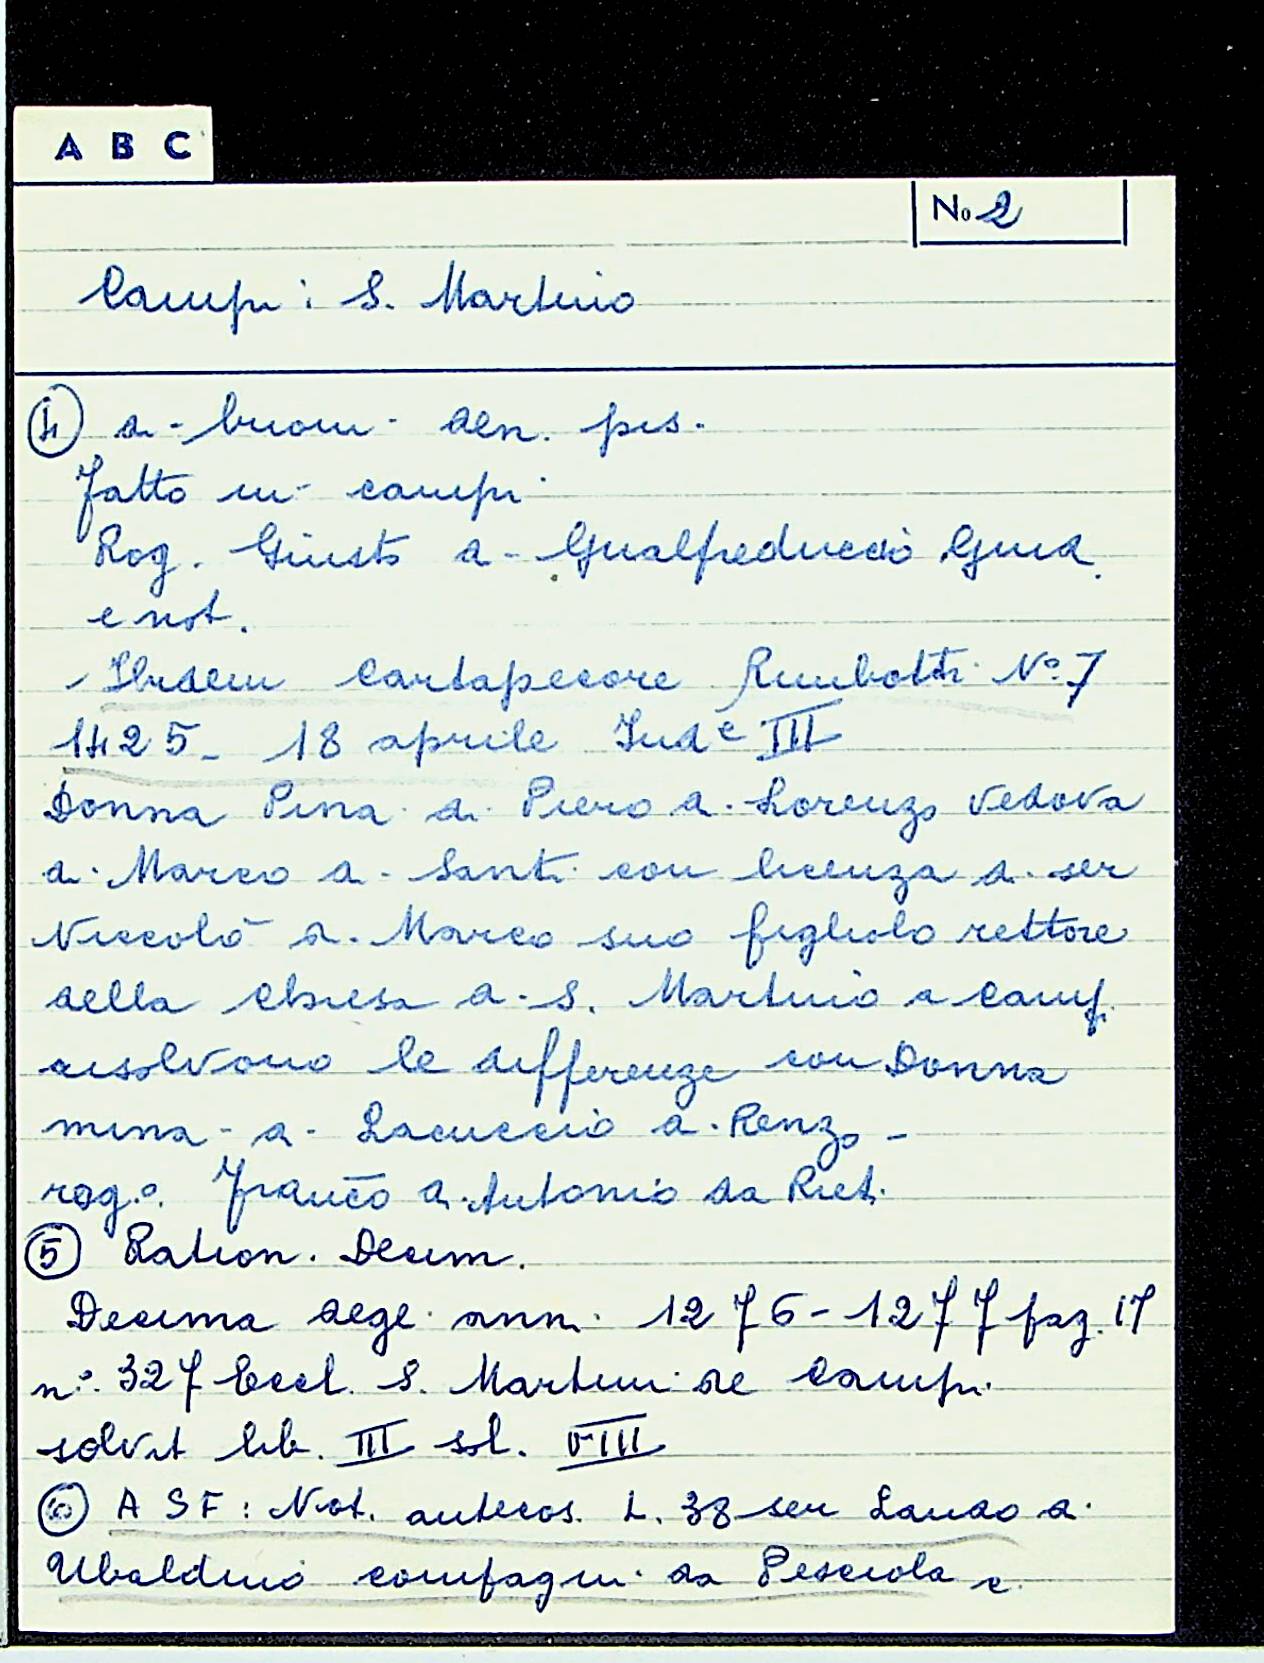 A B C
No 2
Campi: S. Martino
④ di buoni den. pis.
fatto in Campi
Rog. Giusto di Gualfreduccio Giud.
e not.
- Ibidem Cartapecore Rimbotti N.º 7
1425 - 18 aprile Ind.e III
Donna Pina di Piero di Lorenzo vedova
di Marco di Santi con licenza di ser
Niccolò di Marco suo figliolo rettore
della chiesa di S. Martino a Campi
risolvono le differenze con Donna
mina di di Renzo -
rog.º Franc̄o di Antonio da
⑤ Ration. Decim.
Decima degl anni 1276-1277 pag. 17
n.º 327 Eccl. S. Martini de Campi
solvit lib. III sol. VIII
⑥ A S F: Not. antecos. L. 38 ser Lando di
Ubaldino da Pesciola c.